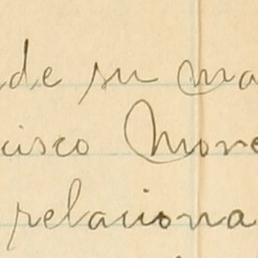 de su ma
cisco More
relaciona